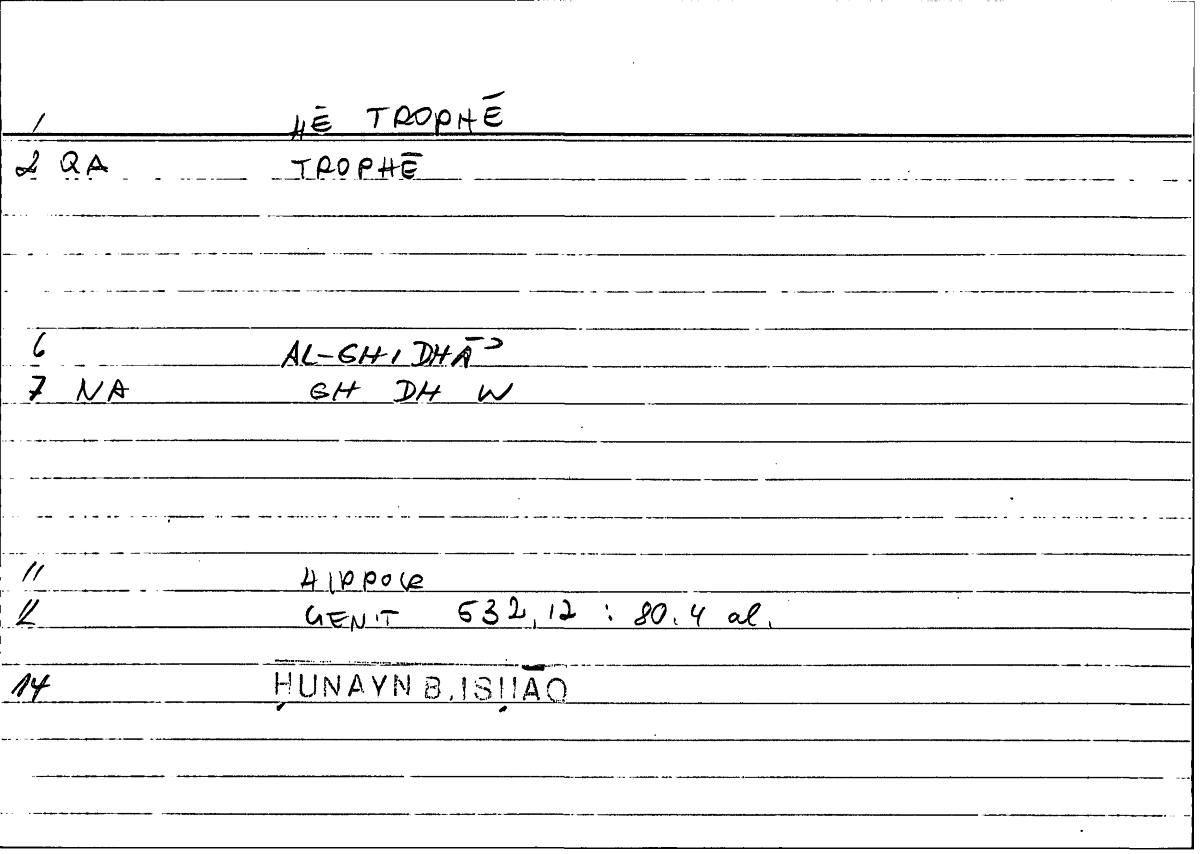 1 HĒ TROPHĒ
2 QA TROPHĒ
6 AL-GHIDHĀʾ
7 NA GH DH W
11 HIPPOCR
12 GENIT 532,12 : 80.4 al.
14 ḤUNAYN B. ISḤĀQ